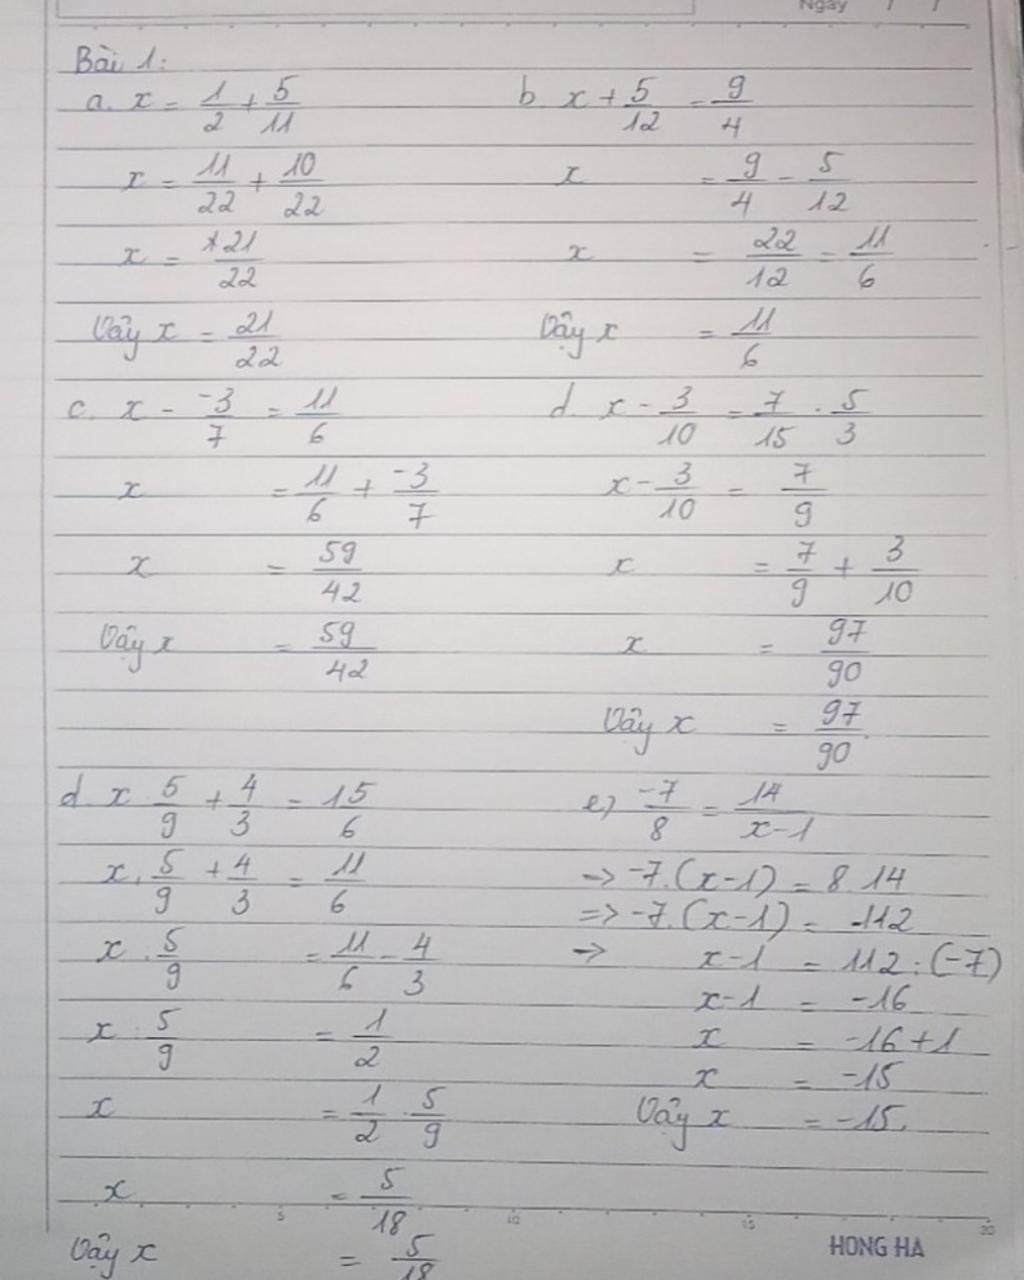 Ngày / /
Bài 1:
a. x = 1/2 + 5/11
x = 11/22 + 10/22
x = 21/22
Vậy x = 21/22
b x + 5/12 = 9/4
x = 9/4 - 5/12
x = 22/12 = 11/6
Vậy x = 11/6
c. x - -3/7 = 11/6
x = 11/6 + -3/7
x = 59/42
Vậy x = 59/42
d. x - 3/10 = 7/15 . 5/3
x - 3/10 = 7/9
x = 7/9 + 3/10
x = 97/90
Vậy x = 97/90.
d. x . 5/9 + 4/3 = 15/6
x . 5/9 + 4/3 = 11/6
x . 5/9 = 11/6 - 4/3
x . 5/9 = 1/2
x = 1/2 . 5/9
x = 5/18
Vậy x = 5/18
e) -7/8 = 14/x-1
=> -7.(x-1) = 8.14
=> -7.(x-1) = 112
=> x-1 = 112 : (-7)
x-1 = -16
x = -16+1
x = -15
Vậy x = -15.
5 10 15 20
HONG HA